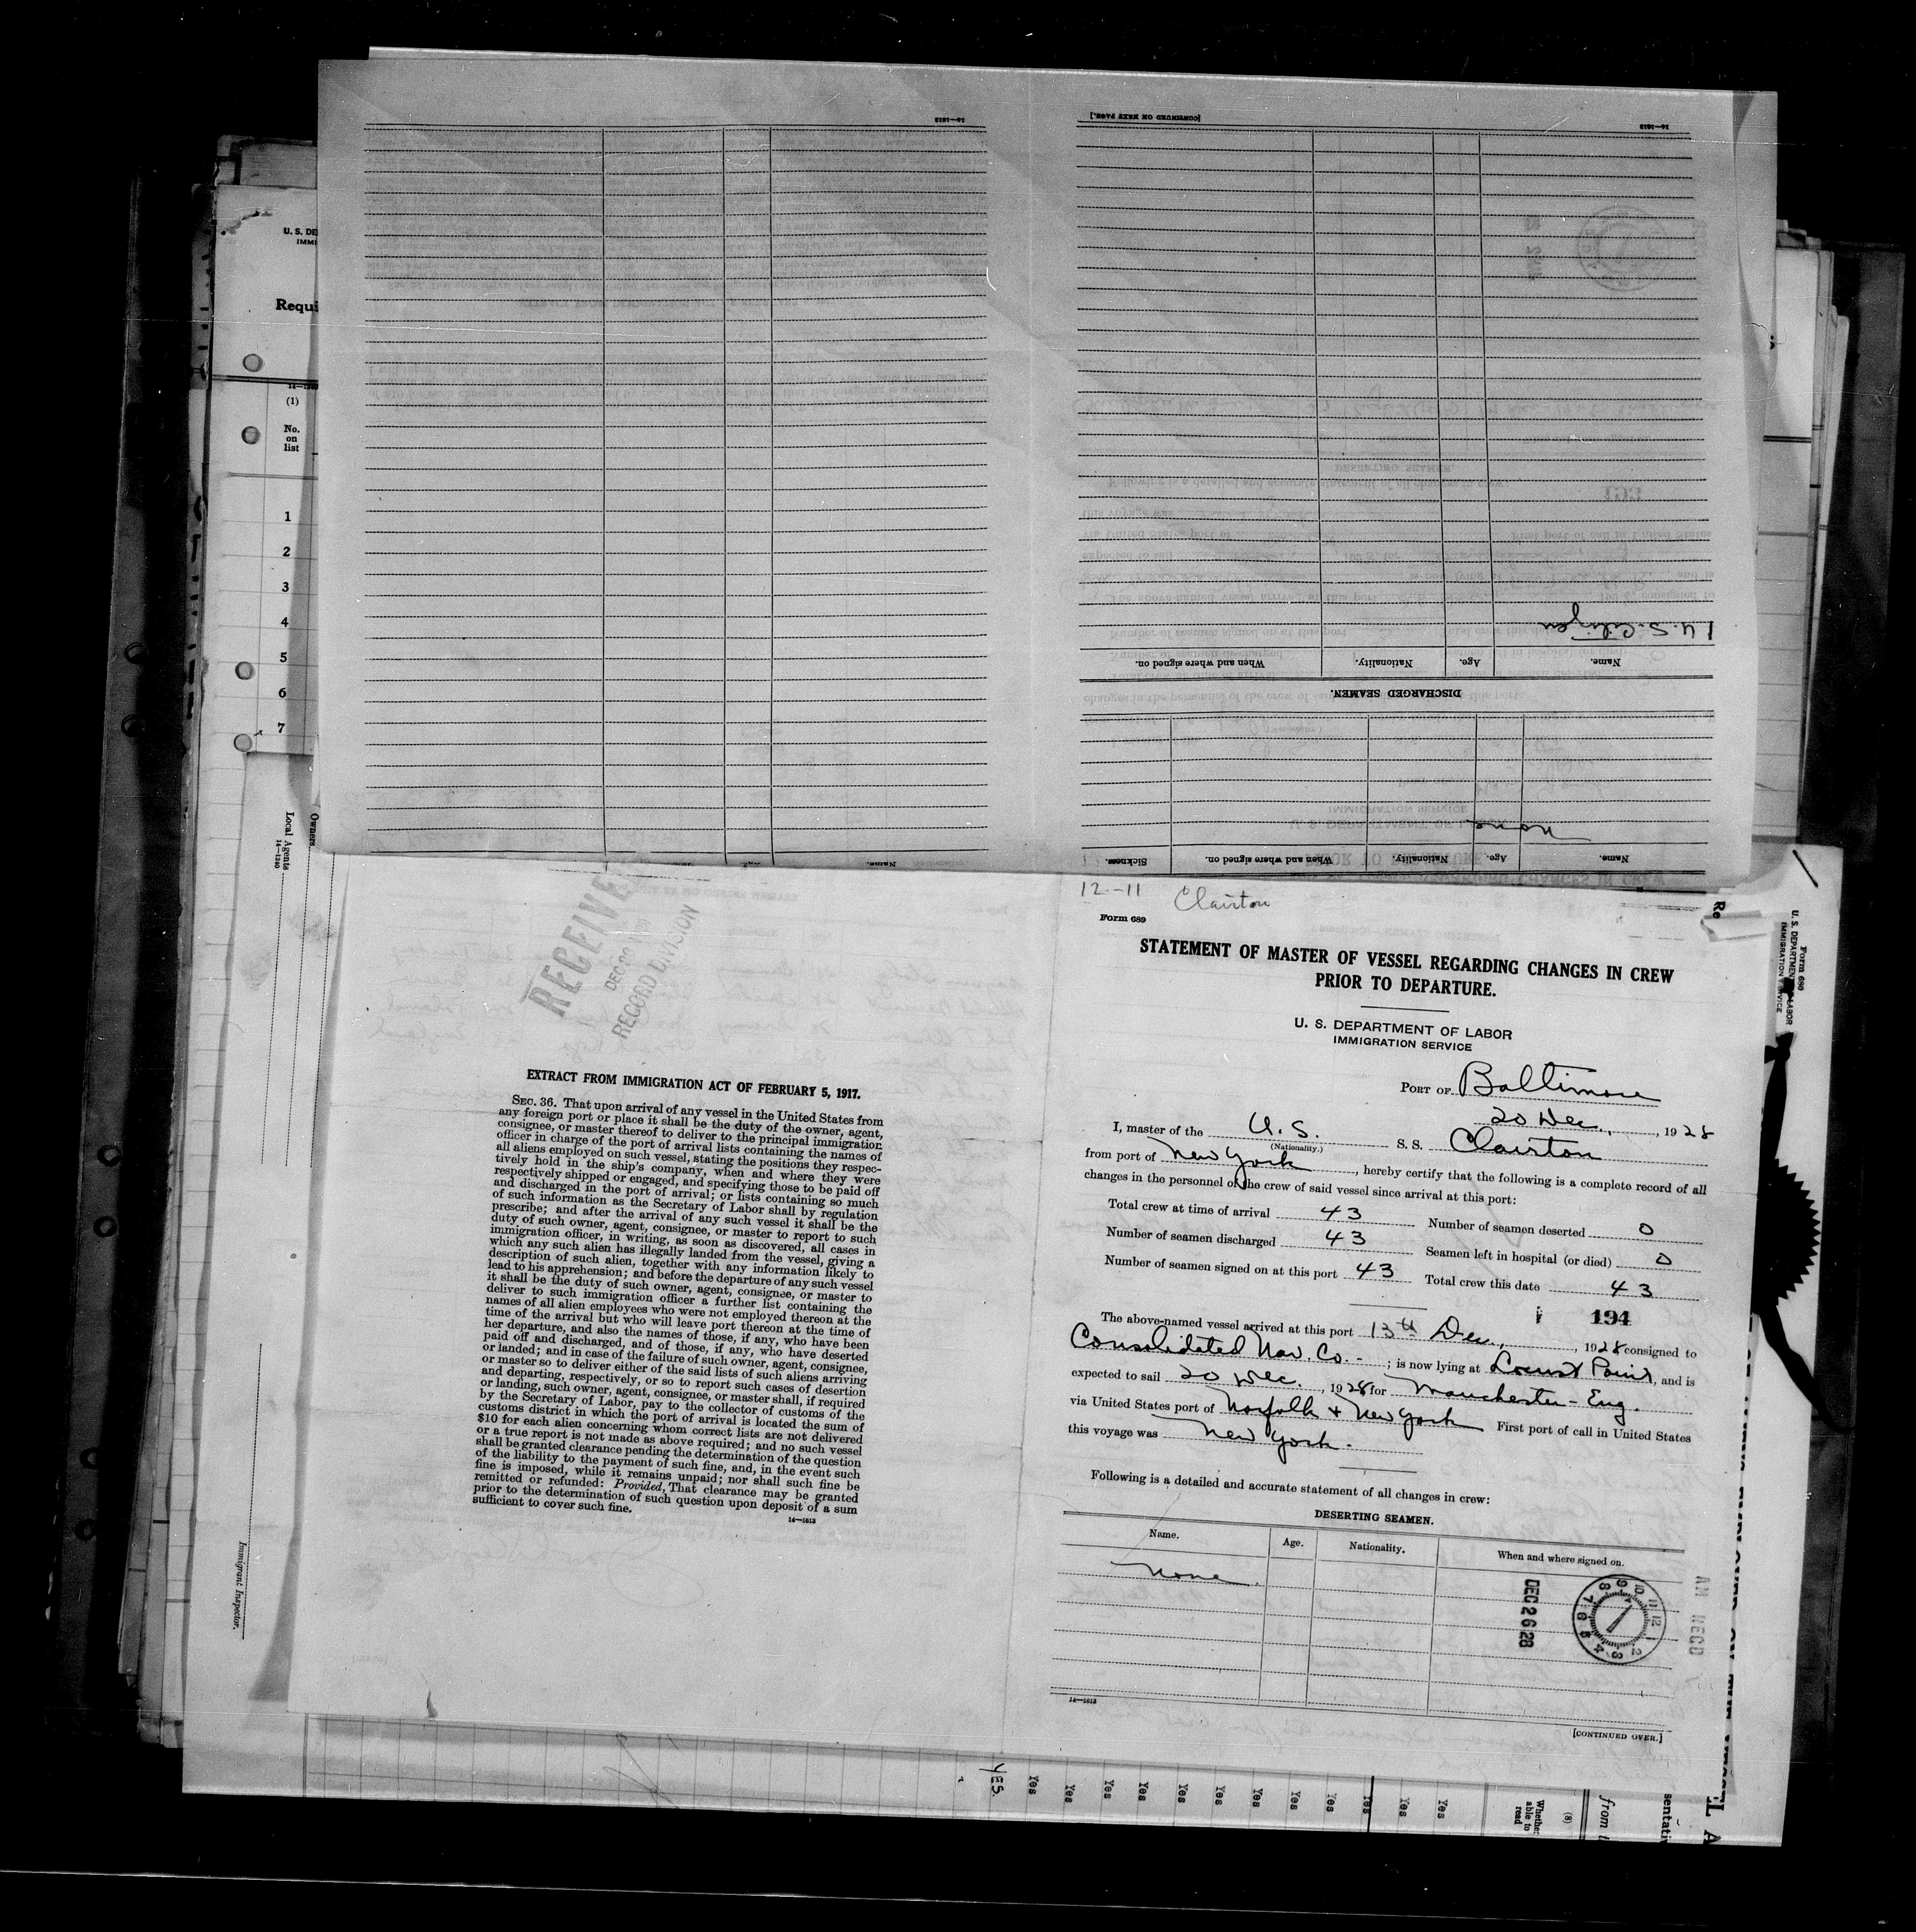 14—1613
[CONTINUED ON NEXT PAGE.]
14—1613
U. S. Citizen
Name. Age. Nationality. When and where signed on.
DISCHARGED SEAMEN.
None
Name. Age. Nationality. When and where signed on. Sickness.
U. S. DE
IMMI
Requi
(1)
No.
on
list
1
2
3
4
5
6
7
Owners
Local Agents
14—1240
Immigrant Inspector.
RECEIVE
DEC 20
RECORD DIVISION
EXTRACT FROM IMMIGRATION ACT OF FEBRUARY 5, 1917.
SEC. 36. That upon arrival of any vessel in the United States from
any foreign port or place it shall be the duty of the owner, agent,
consignee, or master thereof to deliver to the principal immigration
officer in charge of the port of arrival lists containing the names of
all aliens employed on such vessel, stating the positions they respec-
tively hold in the ship's company, when and where they were
respectively shipped or engaged, and specifying those to be paid off
and discharged in the port of arrival; or lists containing so much
of such information as the Secretary of Labor shall by regulation
prescribe; and after the arrival of any such vessel it shall be the
duty of such owner, agent, consignee, or master to report to such
immigration officer, in writing, as soon as discovered, all cases in
which any such alien has illegally landed from the vessel, giving a
description of such alien, together with any information likely to
lead to his apprehension; and before the departure of any such vessel
it shall be the duty of such owner, agent, consignee, or master to
deliver to such immigration officer a further list containing the
names of all alien employees who were not employed thereon at the
time of the arrival but who will leave port thereon at the time of
her departure, and also the names of those, if any, who have been
paid off and discharged, and of those, if any, who have deserted
or landed; and in case of the failure of such owner, agent, consignee,
or master so to deliver either of the said lists of such aliens arriving
and departing, respectively, or so to report such cases of desertion
or landing, such owner, agent, consignee, or master shall, if required
by the Secretary of Labor, pay to the collector of customs of the
customs district in which the port of arrival is located the sum of
$10 for each alien concerning whom correct lists are not delivered
or a true report is not made as above required; and no such vessel
shall be granted clearance pending the determination of the question
of the liability to the payment of such fine, and, in the event such
fine is imposed, while it remains unpaid; nor shall such fine be
remitted or refunded: Provided, That clearance may be granted
prior to the determination of such question upon deposit of a sum
sufficient to cover such fine.
14—1613
12-11 Clairton
Form 689
STATEMENT OF MASTER OF VESSEL REGARDING CHANGES IN CREW
PRIOR TO DEPARTURE.
U. S. DEPARTMENT OF LABOR
IMMIGRATION SERVICE
PORT OF Baltimore
20 Dec., 1928
I, master of the U. S. S. S. Clairton
(Nationality.)
from port of New York, hereby certify that the following is a complete record of all
changes in the personnel of the crew of said vessel since arrival at this port:
Total crew at time of arrival 43 Number of seamen deserted 0
Number of seamen discharged 43 Seamen left in hospital (or died) 0
Number of seamen signed on at this port 43 Total crew this date 43
194
The above-named vessel arrived at this port 13th Dec., 1928 consigned to
Consolidated Nav. Co. - ; is now lying at Locust Point, and is
expected to sail 20 Dec., 1928 for Manchester - Eng.
via United States port of Norfolk + New York First port of call in United States
this voyage was New York.
Following is a detailed and accurate statement of all changes in crew:
DESERTING SEAMEN.
Name. Age. Nationality. When and where signed on.
None.
DEC 26 28
AM RECD
14—1613
[CONTINUED OVER.]
Form 689
U. S. DEPARTMENT OF LABOR
IMMIGRATION SERVICE
YES
Yes
Yes
Yes
Yes
Yes
Yes
Yes
Yes
Yes
Yes
Yes
Whether
able to
read
(8)
from
sentati